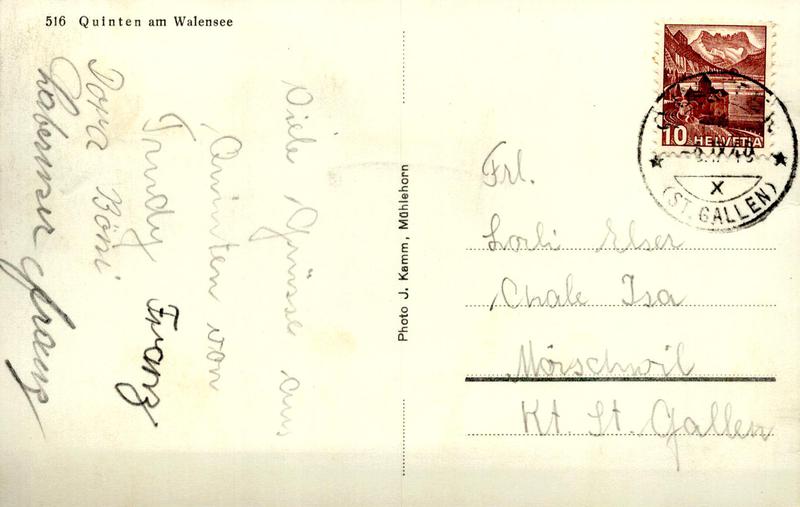 516 Quinten am Walensee
Viele Grüsse aus
Quinten von
Trudy Franz
Böni
Franz
Photo J. Kamm, Mühlehorn
10 HELVETIA
(ST. GALLEN)
X
Frl.
Elser
Chale Isa
Mörschwil
Kt. St. Gallen